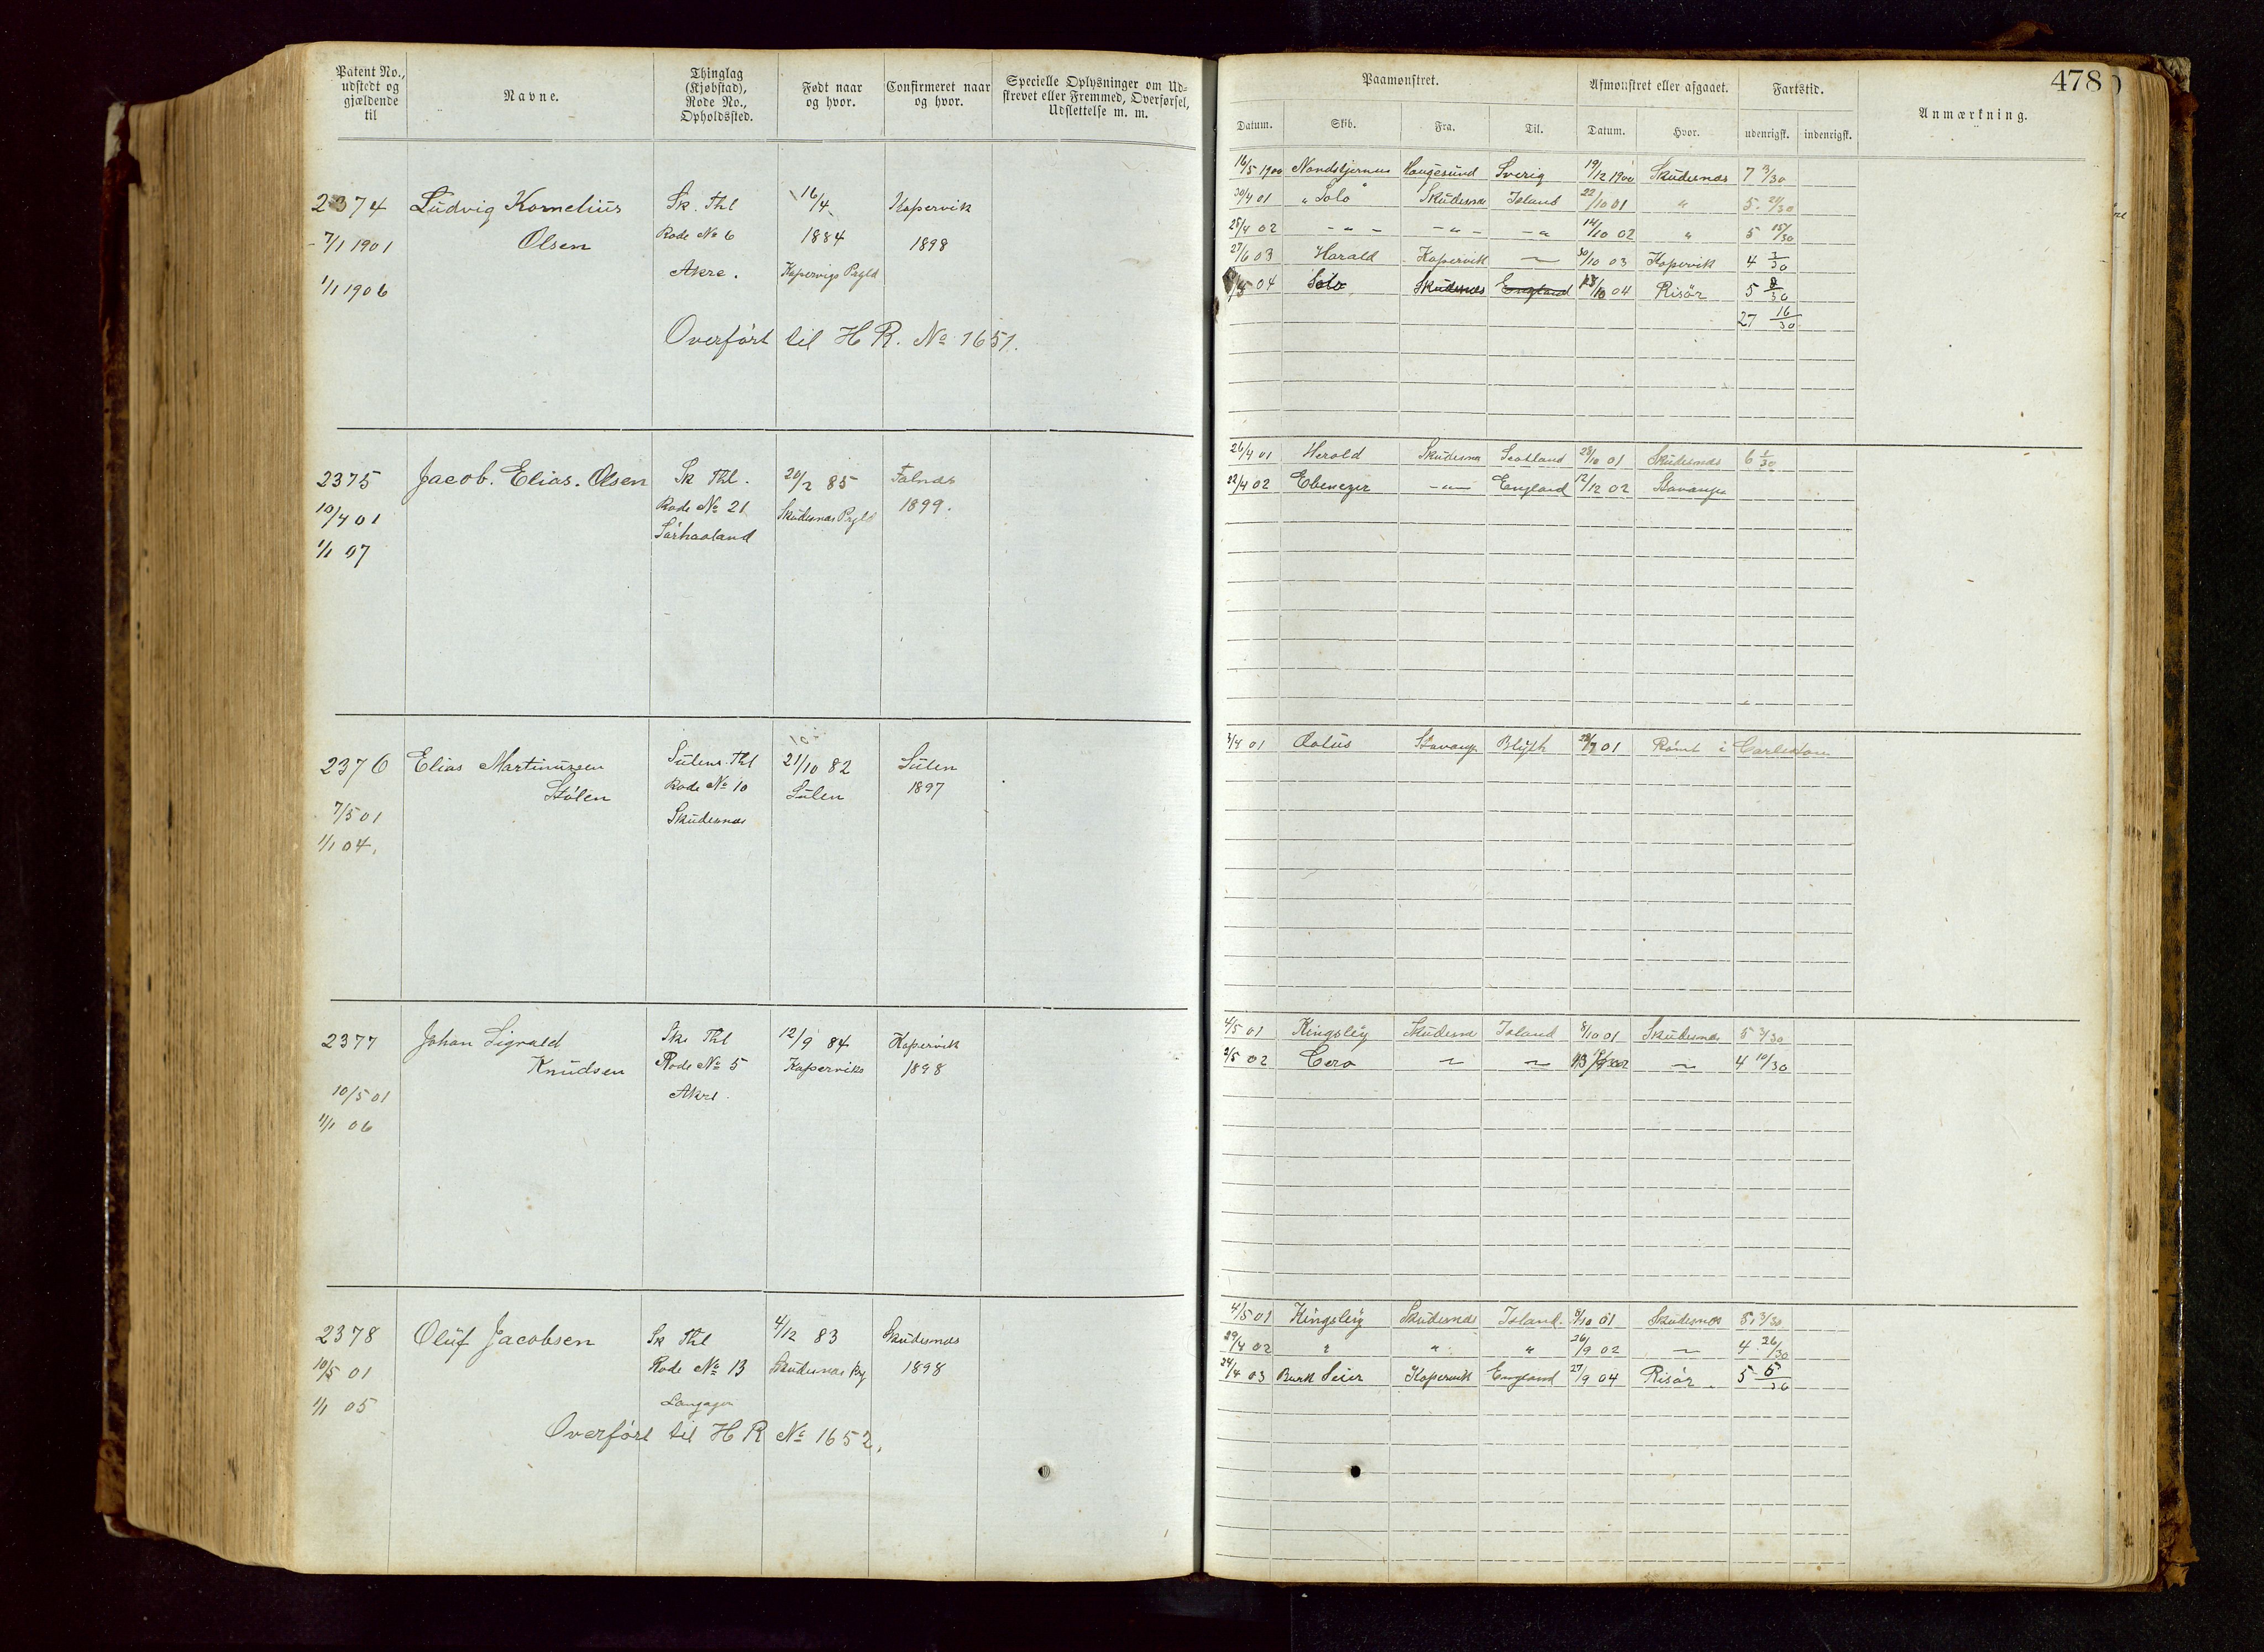 Patent No., udstedt og gjældende til
Navne.
Thinglag (Kjøbstad), Rode No., Opholdssted.
Født naar og hvor.
Confirmeret naar og hvor.
Specielle Oplysninger om Udskrevet eller Fremmed, Overførsel, Udslettelse m. m.
Paamønstret.
Afmønstret eller afgaaet.
Fartstid.
478
Datum.
Skib.
Fra.
Til.
Datum.
Hvor.
udenrigsk.
indenrigsk.
Anmærkning.
2374 Ludvig Kornelius Sk. Thl 16/4 Kopervik
7/1 1901 Olsen Rode No 6 1884 1898
1/1 1906 Akre. Kopervigs Prgld
Overført til H R. No 1651.
16/5 1900 Nordstjernen Haugesund Sverig 19/12 1900 Skudesnæs 7 3/30
30/4 01 "Solo" Skudesnæs Island 22/10 01 " 5. 21/30
28/4 02 - " - - " - - " 14/10 02 " 5 15/30
27/6 03 Harald Kopervik 30/10 03 Kopervik 4 3/30
04 Solo Skudesnæs England 10 04 Risør 5 /30
27 16/30
2375 Jacob. Elias. Olsen Sk Thl. 20/2 85 Falnæs
10/4 01 Rode No 21 Skudesnæs Prgld 1899.
1/1 07 Sørhaaland
26/4 01 Herold Skudesnæ Scotland 28/10 01 Skudesnæs 6 1/30
22/4 02 Ebenezer - " - England 12/12 02 Stavanger
2376 Elias Martinussen Sulens Thl 21/10 82 Sulen
Stølen Rode No 10 Sulen 1897
7/5 01 Skudesnæs
1/1 04.
3/4 01 Stavang Blyth /7 01 Rømt i
2377 Johan Sigvald Sk. Thl 12/9 84 Kopervik
Knudsen Rode No 5 Koperviks 1898
10/5 01 Akre.
1/1 06
4/5 01 Kingsley Skudesnæ Island 8/10 01 Skudesnæs 5 3/30
2/5 02 Cero 4 10/30
2378 Oluf Jacobsen Sk Thl 4/12 83 Skudesnæs
10/5 01 Rode No 13 Skudesnæs Prg 1898
1/1 05
Overført til H R No 1652.
4/5 01 Kingsley Skudesnæs Island. 8/10 01 Skudesnæs 5. 3/30
29/4 02 " " " 26/9 02 4 26/30
24/4 03 Bark Seier Kopervik England 27/9 04 Risør. 5 5/30